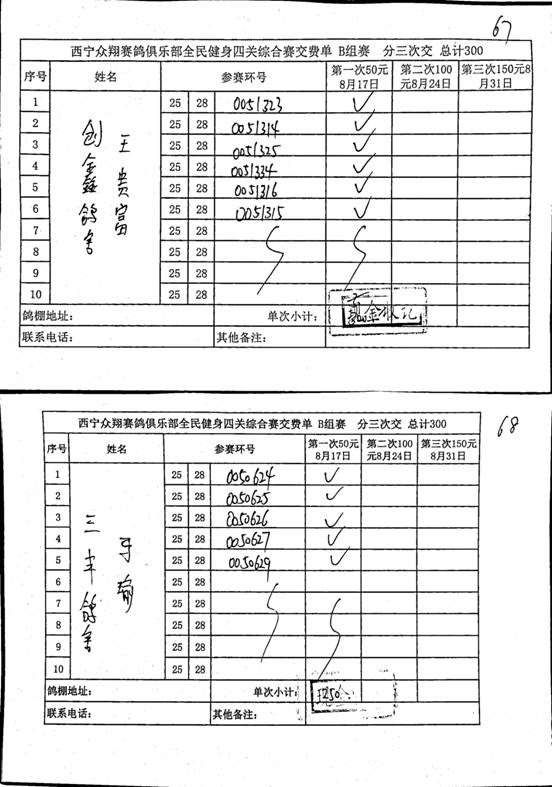 67
西宁众翔赛鸽俱乐部全民健身四关综合赛交费单 B组赛 分三次交 总计300
序号 姓名 参赛环号 第一次50元8月17日 第二次100元8月24日 第三次150元8月31日
创鑫鸽舍 王贵富
1 25 28 0051323 ✓
2 25 28 0051314 ✓
3 25 28 0051325 ✓
4 25 28 0051334 ✓
5 25 28 0051316 ✓
6 25 28 0051315 ✓
7 25 28
8 25 28
9 25 28
10 25 28
鸽棚地址: 单次小计:
联系电话: 其他备注:
68
西宁众翔赛鸽俱乐部全民健身四关综合赛交费单 B组赛 分三次交 总计300
序号 姓名 参赛环号 第一次50元8月17日 第二次100元8月24日 第三次150元8月31日
三丰鸽舍
1 25 28 0050624 ✓
2 25 28 0050625 ✓
3 25 28 0050626 ✓
4 25 28 0050627 ✓
5 25 28 0050629 ✓
6 25 28
7 25 28
8 25 28
9 25 28
10 25 28
鸽棚地址: 单次小计: 250
联系电话: 其他备注: